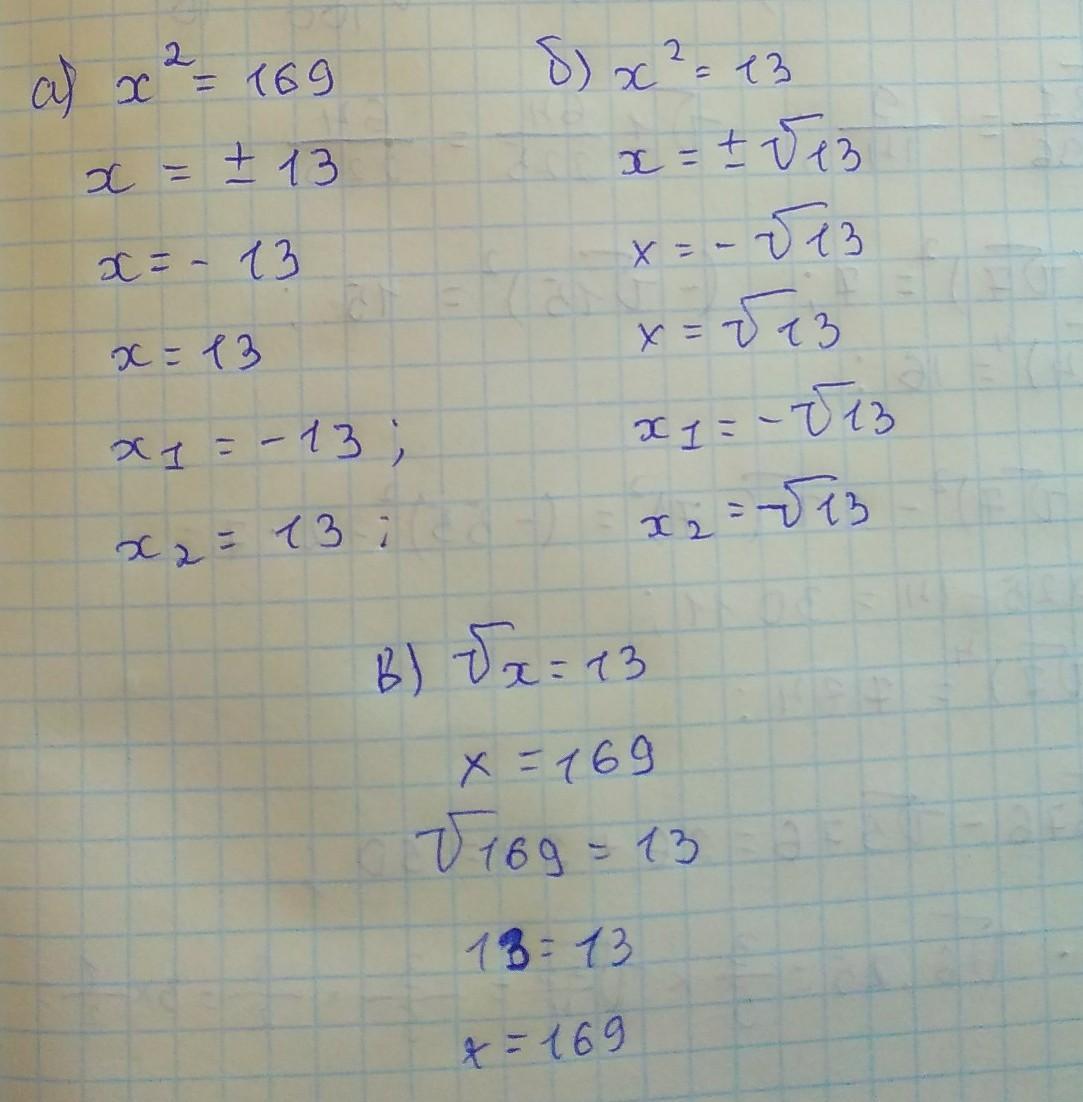 а) x² = 169
x = ± 13
x = - 13
x = 13
x₁ = -13 ;
x₂ = 13 ;
б) x² = 13
x = ± √13
x = - √13
x = √13
x₁ = -√13
x₂ = √13
в) √x = 13
x = 169
√169 = 13
13 = 13
x = 169